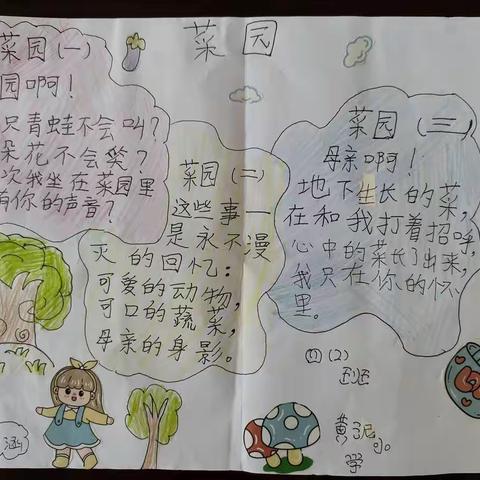 菜园
菜园(一)
园啊!
只青蛙不会叫?
朵花不会笑?
次我坐在菜园里
有你的声音?
菜园(二)
这些事一
是永不漫
灭的回忆:
可爱的动物,
可口的蔬菜,
母亲的身影。
菜园(三)
母亲啊!
地下生长的菜,
在和我打着招呼,
心中的菜长了出来,
我只在你的怀
里。
四(2)
班
黄泥小
学
涵